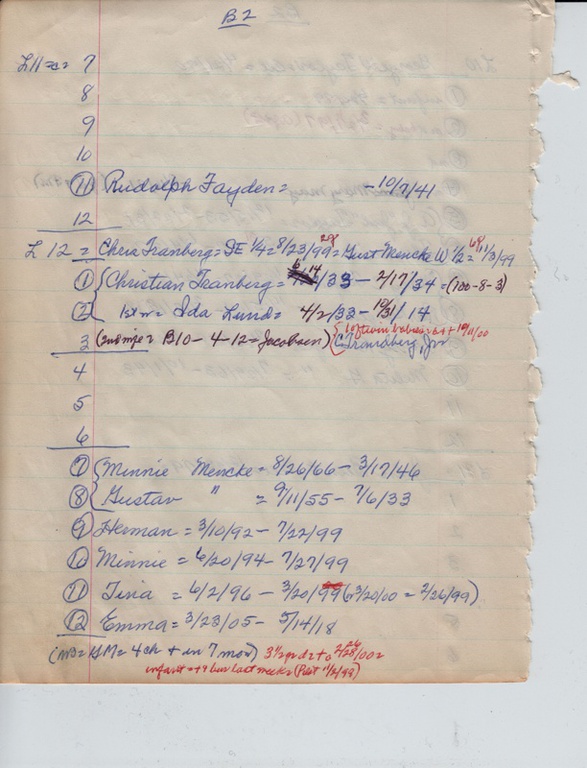 B2
L11 = c = 7
8
9
10
11 Rudolph Fayden = - 10/7/41
12
L 12 = Chris Tranberg = SE 1/4 = 8/23/99 = Gust Mencke W 1/2 = 11/3/99
1 Christian Tranberg = 6/14/33 - 2/17/34 = (100-8-3)
2 1st m = Ida Lund = 4/2/33 - 10/31/14
3 (2nd = B10 - 4 - 12 = Jacobsen) { 1 of twin babies 10/11/00
C. Tranberg, Jr
4
5
6
7 Minnie Mencke = 8/26/66 - 3/17/46
8 Gustav " = 9/11/55 - 7/6/33
9 Herman = 3/10/92 - 7/22/99
10 Minnie = 6/20/94 - 7/27/99
11 Tina = 6/2/96 - 3/20/99 (3/20/00 = 2/26/99)
12 Emma = 3/23/05 - 5/14/18
(NB = GM = 4 ch + dn 7 mon) 3 1/2 yr d
infant = + 9 bur last week